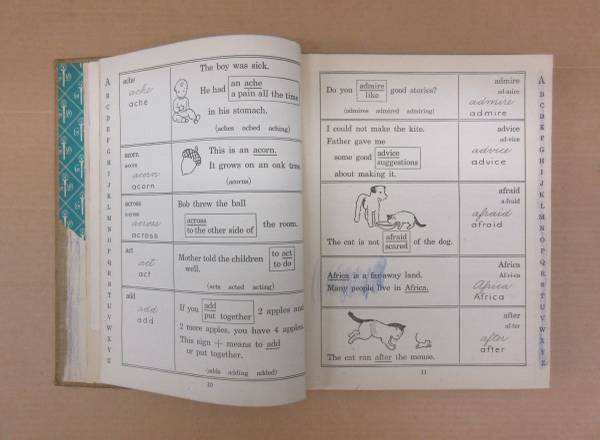 A
B
C
D
E
F
G
H
I
J
K
L
M
N
O
P
Q
R
S
T
U
V
W
X
Y
Z
ache
ache
ache
The boy was sick.
He had an ache
a pain all the time
in his stomach.
(aches ached aching)
acorn
acorn
acorn
acorn
This is an acorn.
It grows on an oak tree
(acorns)
across
across
across
across
Bob threw the ball
across
to the other side of the room.
act
act
act
Mother told the children to act
to do
well.
(acts acted acting)
add
add
add
If you add
put together 2 apples and
2 more apples, you have 4 apples.
This sign + means to add
or put together.
(adds adding added)
10
Do you admire
like good stories?
(admires admired admiring)
admire
ad-mire
admire
admire
I could not make the kite.
Father gave me
some good advice
suggestions
about making it.
advice
ad-vice
advice
advice
The cat is not afraid
scared of the dog.
afraid
a-fraid
afraid
afraid
Africa is a faraway land.
Many people live in Africa.
Africa
Af-ri-ca
Africa
Africa
The cat ran after the mouse.
after
af-ter
after
after
11
A
B
C
D
E
F
G
H
I
J
K
L
M
N
O
P
Q
R
S
T
U
V
W
X
Y
Z